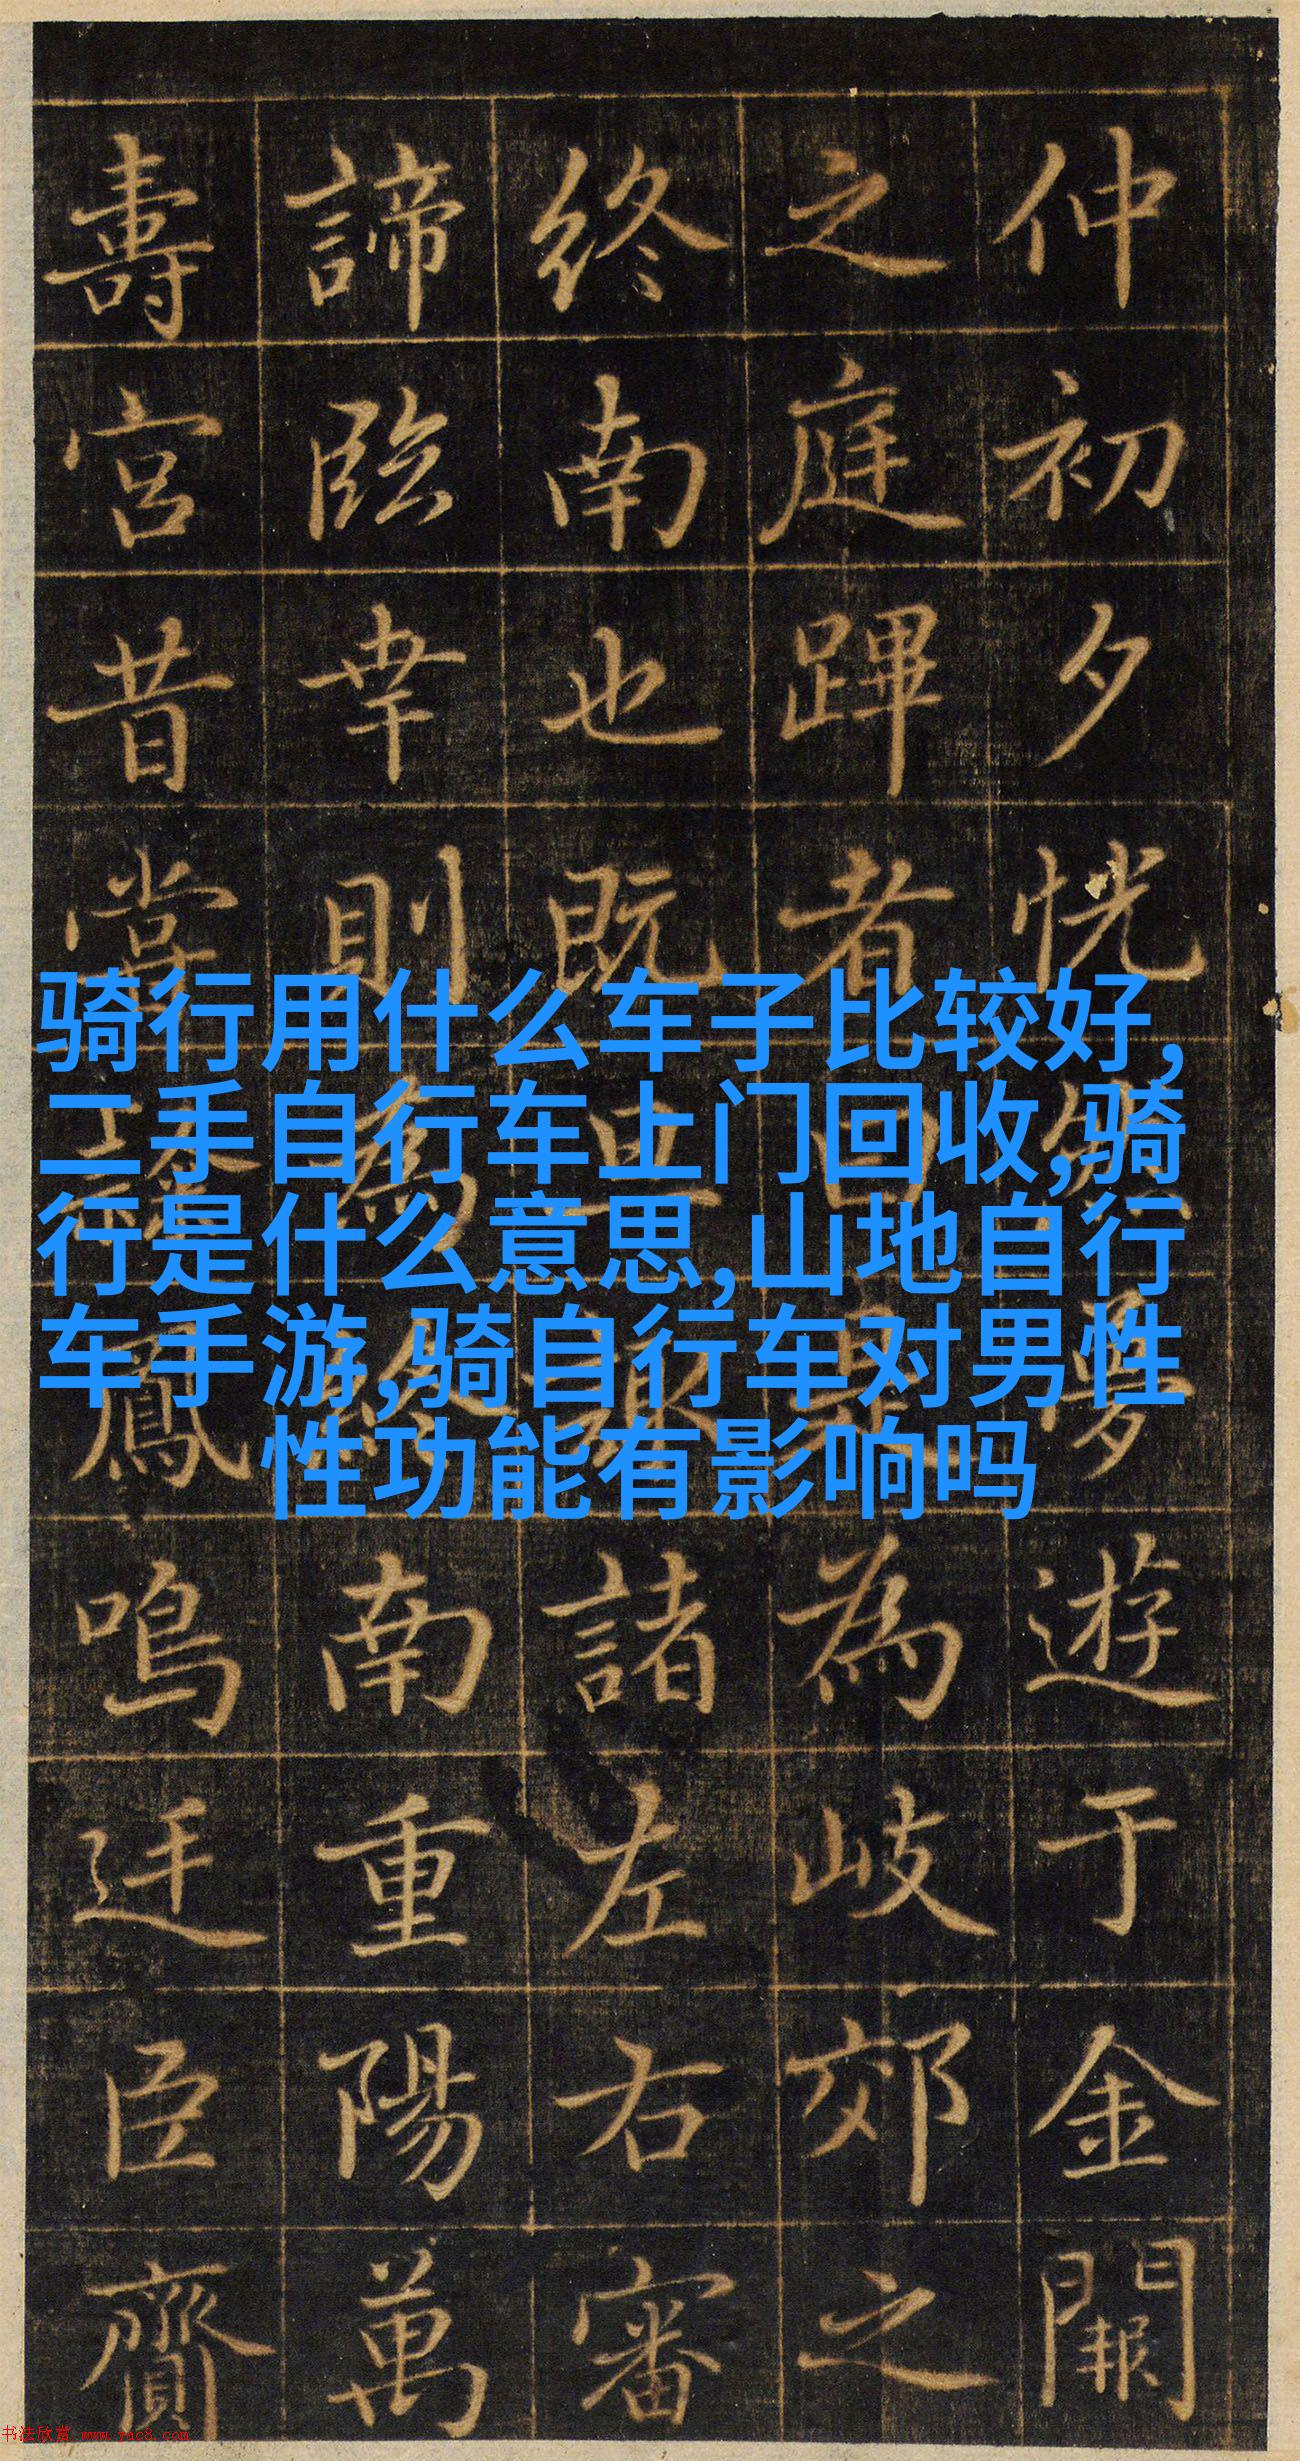 仲初夕恍夢遊于金闕
之庭蹕者曰為岐郊之
終南也既旦諸左右審
諦臨幸則為南重陽萬
壽宮昔嘗鳳鳴臣齎
骑行用什么车子比较好,
二手自行车上门回收,骑
行是什么意思,山地自行
车手游,骑自行车对男性
性功能有影响吗
书法欣赏 www.yac8.com